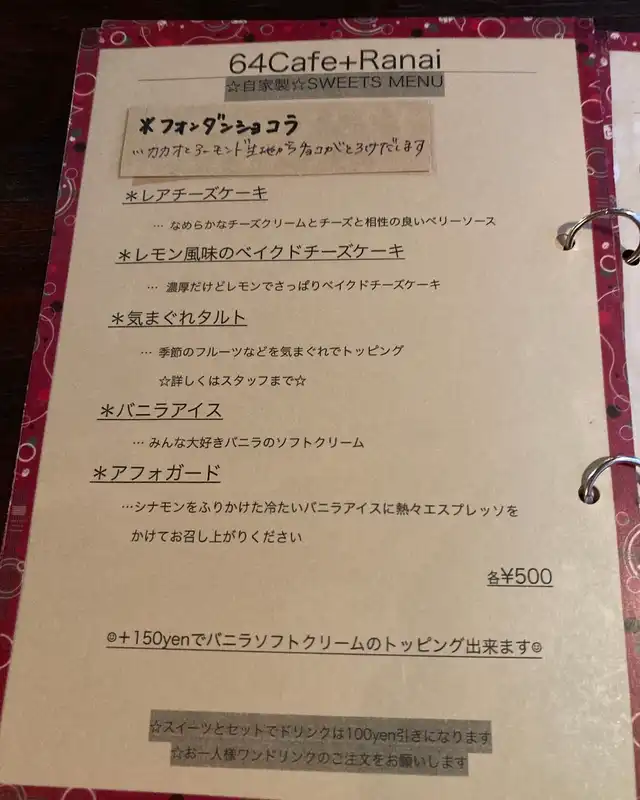 64Cafe+Ranai
☆自家製☆SWEETS MENU
*フォンダンショコラ
…カカオとアーモンド生地からチョコがとろけだします
＊レアチーズケーキ
… なめらかなチーズクリームとチーズと相性の良いベリーソース
＊レモン風味のベイクドチーズケーキ
… 濃厚だけどレモンでさっぱりベイクドチーズケーキ
＊気まぐれタルト
… 季節のフルーツなどを気まぐれでトッピング
☆詳しくはスタッフまで☆
＊バニラアイス
… みんな大好きバニラのソフトクリーム
＊アフォガード
…シナモンをふりかけた冷たいバニラアイスに熱々エスプレッソを
かけてお召し上がりください
各¥500
☺＋150yenでバニラソフトクリームのトッピング出来ます☺
☆スイーツとセットでドリンクは100yen引きになります
☆お一人様ワンドリンクのご注文をお願いします